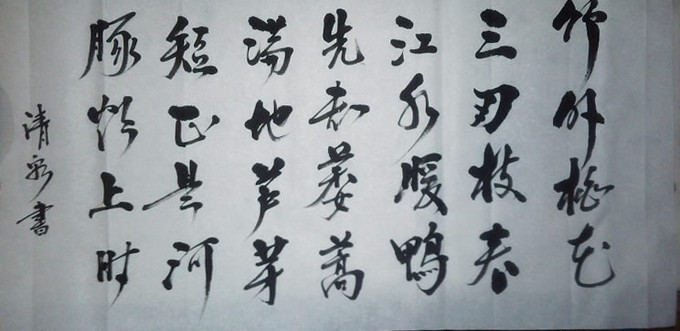 竹外桃花
三两枝春
江水暖鸭
先知蒌蒿
满地芦芽
短正是河
豚欲上时
清泉書